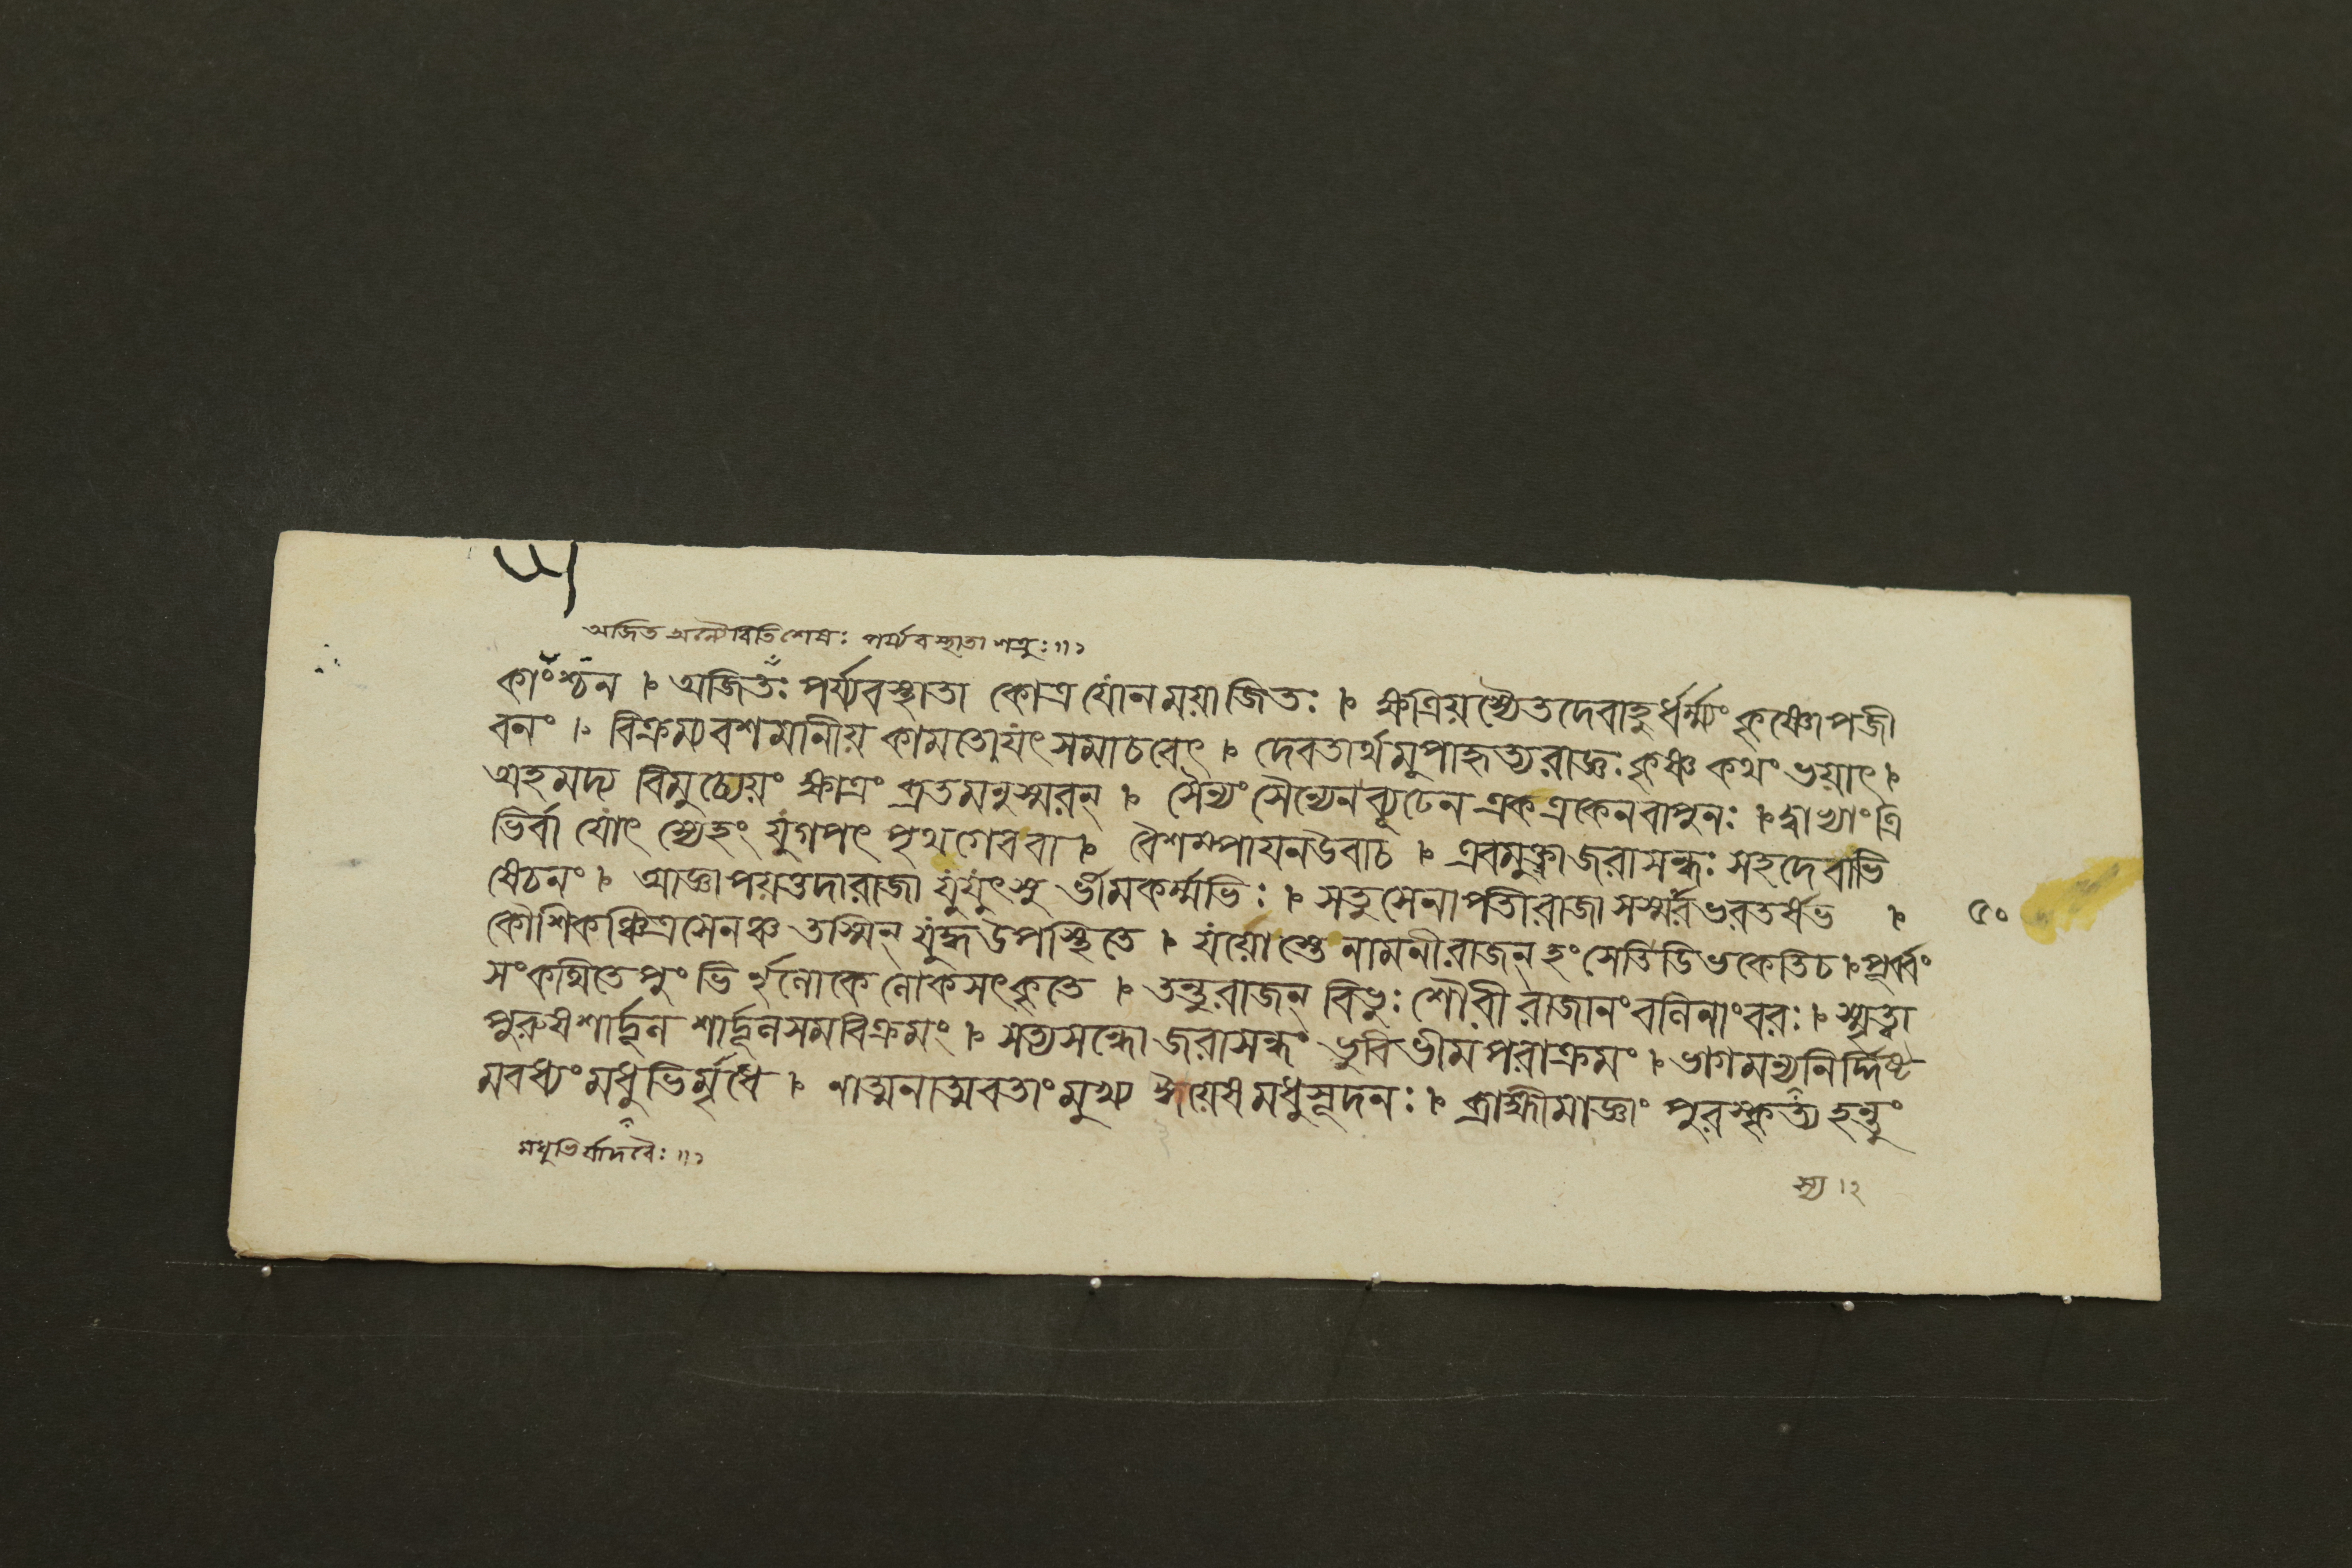 অজিত অন্যৈরিতি শেষঃ পর্য্যবস্থাতা শত্রুঃ॥১
কাংশ্চন । অজিতঃ পর্য্যবস্থাতা কোত্র যোনময়াজিতঃ । ক্ষত্রিয়স্যৈতদেবাহুর্ধর্ম্মং কৃষ্ণোপজী
বনং । বিক্রম্যবশমানীয় কামতোযৎসমাচরেৎ । দেবতার্থমুপাহৃত্যরাজ্ঞঃ কৃষ্ণ কথং ভয়াৎ ।
অহমদ্য বিমুচ্যেয়ং ক্ষাত্রং ব্রতমনুস্মরন্ । সৈন্যং সৈন্যেনব্যূঢেন একএকেনবাপুনঃ । দ্বাভ্যাংত্রি
ভির্বা যোৎস্যেহং যুগপৎ পৃথগেববা । বৈশম্পায়নউবাচ । এবমুক্ত্বাজরাসন্ধঃ সহদেবাভি
ষেচনং । আজ্ঞাপয়ত্তদারাজা যুযুৎসু র্ভীমকর্ম্মভিঃ । সতুসেনাপতীরাজা সস্মার ভরতর্ষভ । ৫০
কৌশিকঞ্চিত্রসেনঞ্চ তস্মিন্ যুদ্ধউপস্থিতে । যয়োস্তে নামনীরাজন্ হংসেতিডিভকেতিচ । পূর্ব্বং
সংকথিতেপুংভি র্নৃলোকেলোকসৎকৃতে । তন্তুরাজন্ বিভুঃ শৌরী রাজানংবলিনাংবরঃ । স্মৃত্বা
পুরুষশার্দ্দূল শার্দ্দূলসমবিক্রমং । সত্যসন্ধো জরাসন্ধং ভুবিভীমপরাক্রমং । ভাগমন্যনির্দ্দিষ্ট
মবধ্যংমধুভির্মৃধে । নাত্মনাত্মবতাংমুখ্য ইয়েষমধুসূদনঃ । ব্রাহ্মীমাজ্ঞাং পুরস্কৃত্য হন্তুং
মধুভির্যাদবৈঃ॥১
স্য।২